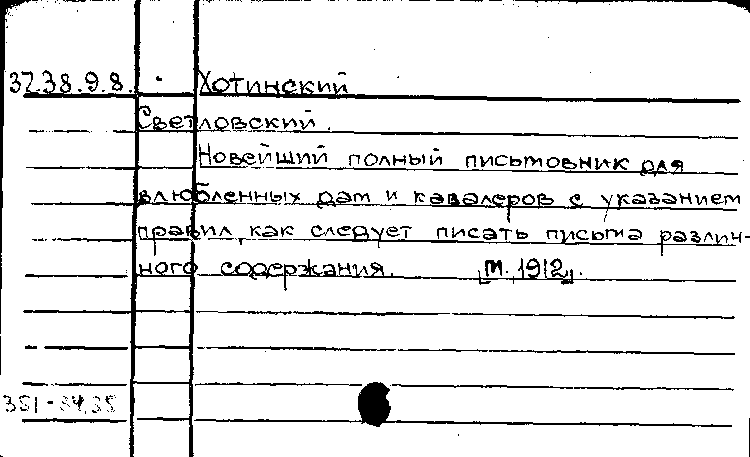 37.38.9.8. Хотинский
Светловский.
Новейший полный письмовник для
влюбленных дам и кавалеров с указанием
правил, как следует писать письма различ-
ного содержания. [М. 1912].
351-34.35